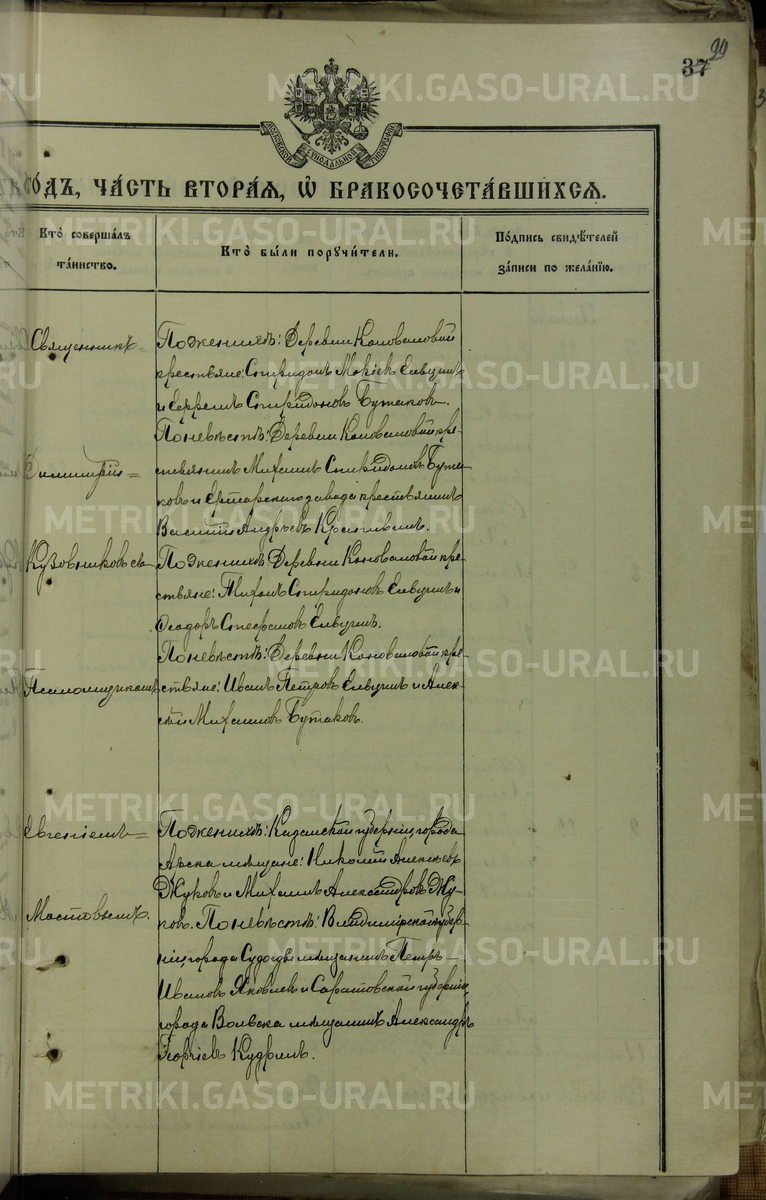 37
99
МОСКОВСКОЙ СѴНОДАЛЬНОЙ ТИПОГРАФІИ
го́дъ, ча́сть втора́я, ѡ҆ бракосочета́вшихсѧ.
Кто̀ соверша́лъ та́инство.
Кто̀ бы́ли порꙋчи́тели.
По́дпись свидѣ́телей за́писи по жела́нїю.
Священникъ
Димитрій
Кузовниковъ съ
Псаломщикомъ
Евгеніемъ
Мостовымъ.
По женихѣ: Деревни Коноваловой
крестьяне: Спиридонъ Мокіевъ Елвушкинъ
и Ефремъ Спиридоновъ Бутаковъ.
По невѣстѣ: Деревни Коноваловой кре-
стьянинъ Михаилъ Спиридоновъ Бута-
ковъ и Ертарскаго завода крестьянинъ
Василій Андреевъ
По женихѣ: Деревни Коноваловой кре-
стьяне: Спиридоновъ и
Ѳеодоръ Стефановъ
По невѣстѣ: Деревни Коноваловой кре-
стьяне: Иванъ Петровъ и Алек-
сѣй Михаиловъ Бутаковъ.
По женихѣ: Казанской губерніи, города
Арска мѣщане: Николай Алексѣевъ
Жуковъ и Михаилъ Александровъ Жу-
ковъ. По невѣстѣ: Владимірской губер-
ніи, города Судогды мѣщанинъ Петръ
Ивановъ Яковлевъ и Саратовской губерніи,
города Вольска мѣщанинъ Александръ
Георгіевъ Кудринъ.
METRIKI.GASO-URAL.RU